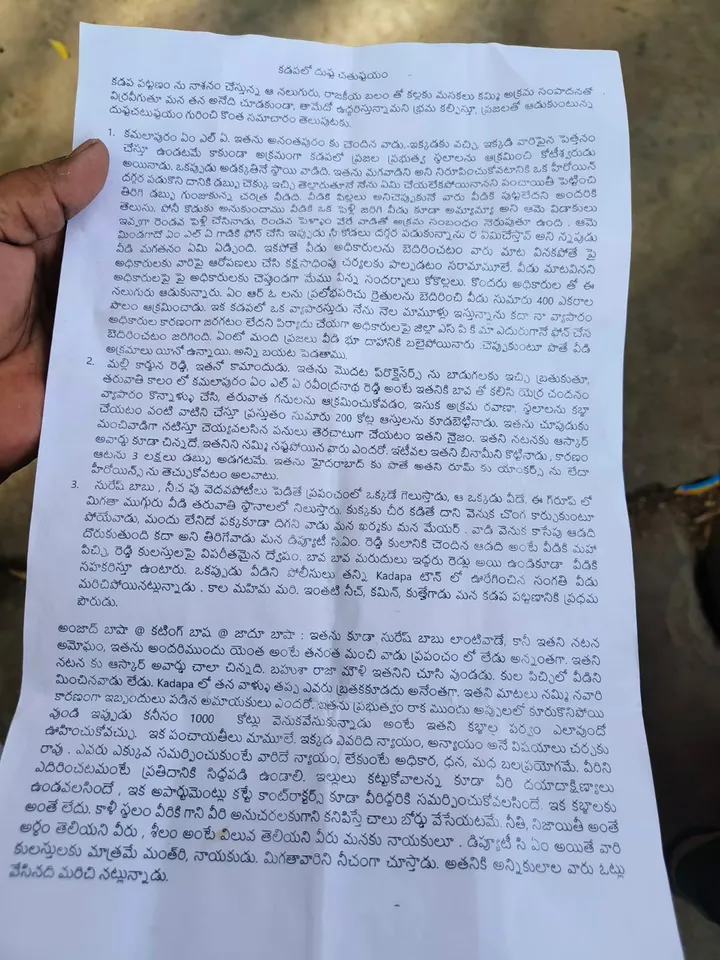 కడపలో దుష్ట చతుష్టయం
కడప పట్టణం ను నాశనం చేస్తున్న ఆ నలుగురు, రాజకీయ బలం తో కళ్లకు మసకలు కమ్మి అక్రమ సంపాదనతో
విర్రవీగుతూ మన తన అనేది చూడకుండా, తామేదో ఉద్ధరిస్తున్నామని భ్రమ కల్పిస్తూ, ప్రజలతో ఆడుకుంటున్న
దుష్టచతుష్టయం గురించి కొంత సమాచారం తెలుపుటకు.
1. కమలాపురం ఏం ఎల్ ఏ. ఇతను అనంతపురం కు చెందిన వాడు. ఇక్కడకు వచ్చి, ఇక్కడి వారిపైన పెత్తనం
చేస్తూ ఉండటమే కాకుండా అక్రమంగా కడపలో ప్రజల ప్రభుత్వ స్థలాలను ఆక్రమించి కోటీశ్వరుడు
అయినాడు. ఒకప్పుడు అడక్కతినే స్థాయి వాడిది. ఇతను మగవాడిని అని నిరూపించుకోవటానికి ఒక హీరోయిన్
దగ్గర పడుకొని దానికి డబ్బు చెక్కు ఇచ్చి తెల్లారుతూనే నేను ఏమి చేయలేకపోయినానని పంచాయితీ పెట్టించి
తిరిగి డబ్బు గుంజుకున్న చరిత్ర వీడిది. వీడికి పిల్లలు అనిచెప్పుకునే వారు వీడికి పుట్టలేదని అందరికి
తెలుసు. పోనీ కొడుకు అనుకుందాము వీడికి ఒక పెళ్లి జరిగి వీడు కూడా అమ్మాయ్యా అని ఆమె విడాకులు
ఇవ్వగా రెండవ పెళ్లి చేసినాడు. రెండవ పెళ్ళాం వేరే వాడితో అక్రమ సంబంధం నెరుపుతూ ఉంది . ఆమె
మిండగాడో ఏం ఎల్ ఏ గాడికి ఫోన్ చేసి ఇప్పుడు నీ కోడలు దగ్గర పడుకున్నాను ర ఏమిచేస్తావ్ అని న్నప్పుడు
వీడి మగతనం ఏమి ఏడ్చింది. ఇకపోతే వీడు అధికారులను బెదిరించటం వారు మాట వినకపోతే పై
అధికారులకు వారిపై ఆరోపణలు చేసి కక్షసాధింపు చర్యలకు పాల్పడటం సరామామూలే. వీడు మాటవినని
అధికారులపై పై అధికారులకు చెప్పుండగా మేము విన్న సందర్భాలు కోకొల్లలు. కొందరు అధికారుల తో ఈ
నలుగురు ఆడుకున్నారు. ఏం ఆర్ ఓ లను ప్రలోభపరిచు రైతులను బెదిరించి వీడు సుమారు 400 ఎకరాల
పొలం ఆక్రమించాడు. ఇక కడపలో ఒక వ్యాపారస్తుడు నేను నెల మామూళ్లు ఇస్తున్నాను కదా నా వ్యాపారం
అధికారుల కారణంగా జరగటం లేదని పిర్యాదు చేయగా అధికారులపై జిల్లా ఎస్ పి కి మా ఎదురుగానే ఫోన్ చేసి
బెదిరించటం జరిగింది. ఏంటో మంది ప్రజలు వీడి భూ దాహానికి బలైపోయినారు .చెప్పుకుంటూ పొతే వీడి
అక్రమాలు యినో ఉన్నాయి. అన్ని బయట పెడతాము.
2. మల్లి కార్జున రెడ్డి, ఇతనో కామాంధుడు. ఇతను మొదట ప్రొక్లైనర్స్ ను బాడుగలకు ఇచ్చి బ్రతుకుతూ,
తరువాతి కాలం లో కమలాపురం ఏం ఎల్ ఏ రవీంద్రనాథ రెడ్డి అంటే ఇతనికి బావ తో కలిసి యెర్ర చందనం
వ్యాపారం కొన్నాళ్ళు చేసి, తరువాత గనులను ఆక్రమించుకోవడం, ఇసుక అక్రమ రవాణా, స్థలాలను కబ్జా
చేయటం వంటి వాటిని చేస్తూ ప్రస్తుతం సుమారు 200 కోట్ల ఆస్తులను కూడబెట్టినాడు. ఇతను చూపుడుకు
మంచివాడిగా నటిస్తూ చెయ్యవలసిన పనులు తెరచాటుగా చేయటం ఇతని నైజం. ఇతని నటనకు ఆస్కార్
అవార్డు కూడా చిన్నదే. ఇతనిని నమ్మి నష్టపోయిన వారు ఎందరో. ఇటీవల ఇతని బినామీని కొట్టినాడు , కారణం
ఆటను 3 లక్షలు డబ్బు అడగటమే. ఇతను హైదరాబాద్ కు పొతే అతని రూమ్ కు యాంకర్స్ ను లేదా
హీరోయిన్స్ ను తెచ్చుకోవటం అలవాటు.
3. సురేష్ బాబు , నీచ పు వెదవపోటీలు పెడితే ప్రపంచంలో ఒక్కడే గెలుస్తాడు, ఆ ఒక్కడు వీడే. ఈ గ్రూప్ లో
మిగతా ముగ్గురు వీడి తరువాతి స్థానాలలో నిలుస్తారు. కుక్కకు చీర కడితే దాని వెనుక చొంగ కార్చుకుంటూ
పోయేవాడు, మందు లేనిదే పక్కకూడా దిగని వాడు మన ఖర్మకు మన మేయర్ . వాడి వెనుక కాసేపు ఆడది
దొరుకుతుంది కదా అని తిరిగేవాడు మన డిప్యూటీ సిఎం. రెడ్డి కులానికి చెందిన ఆడది అంటే వీడికి మహా
పిచ్చి, రెడ్డి కులస్తులపై విపరీతమైన ద్వేషం. బావ బావ మరుదులు ఇద్దరు రెడ్లు అయి ఉండికూడా వీడికి
సహకరిస్తూ ఉంటారు. ఒకప్పుడు వీడిని పోలీసులు తన్ని Kadapa టౌన్ లో ఊరేగించిన సంగతి వీడు
మరిచిపోయినట్లున్నాడు . కాల మహిమ మరి. ఇంతటి నీచ్, కమీన్, కుత్తేగాడు మన కడప పట్టణానికి ప్రధమ
పౌరుడు.
అంజాద్ బాషా @ కటింగ్ బాష @ జాదూ బాషా : ఇతను కూడా సురేష్ బాబు లాంటివాడే, కానీ ఇతని నటన
అమోఘం, ఇతను అందరిముందు యెంత అంటే తనంత మంచి వాడు ప్రపంచం లో లేడు అన్నంతగా. ఇతని
నటన కు ఆస్కార్ అవార్డు చాలా చిన్నది. బహుశా రాజా మౌళి ఇతనిని చూసి వుండడు. కుల పిచ్చిలో వీడిని
మించినవాడు లేడు. Kadapa లో తన వాళ్ళు తప్ప ఎవరు బ్రతకకూడదు అనేంతగా. ఇతని మాటలు నమ్మి నవారి
కారణంగా ఇబ్బందులు పడిన అమాయకులు ఎందరో. ఇతను ప్రభుత్వం రాక ముందు అప్పులలో కూరుకొనిపోయి
వుండి ఇప్పుడు కనీసం 1000 కోట్లు వెనుకవేసుకున్నాడు అంటే ఇతని కబ్జాల పర్వం ఎలావుందో
ఊహించుకోవచ్చు. ఇక పంచాయతీలు మామూలే. ఇక్కడ ఎవరిది న్యాయం, అన్యాయం అనే విషయాలు చర్చకు
రావు . ఎవరు ఎక్కువ సమర్పించుకుంటే వారిదే న్యాయం. లేకుంటే అధికార, ధన, మధ బలప్రయోగమే. వీరిని
ఎదిరించటమంటే ప్రతిదానికి సిద్ధపడి ఉండాలి. ఇల్లులు కట్టుకోవాలన్న కూడా వీరి దయాదాక్షిణ్యాలు
ఉండవలసిందే , ఇక అపార్టుమెంట్లు కట్టే కాంట్రాక్టర్స్ కూడా వీరిద్దరికి సమర్పించుకోవలసిందే. ఇక కబ్జాలకు
అంతే లేదు. కాళీ స్థలం వీరికి గాని వీరి అనుచరలకుగాని కనిపిస్తే చాలు బోర్డు వేసేయటమే. నీతి, నిజాయితీ అంతే
అర్థం తెలియని వీరు , శీలం అంటే విలువ తెలియని వీరు మనకు నాయకులూ . డిప్యూటీ సి ఏం అయితే వారి
కులస్తులకు మాత్రమే మంత్రి, నాయకుడు. మిగతావారిని నీచంగా చూస్తాడు. అతనికి అన్నికులాల వారు ఓట్లు
వేసినది మరిచి నట్లున్నాడు.